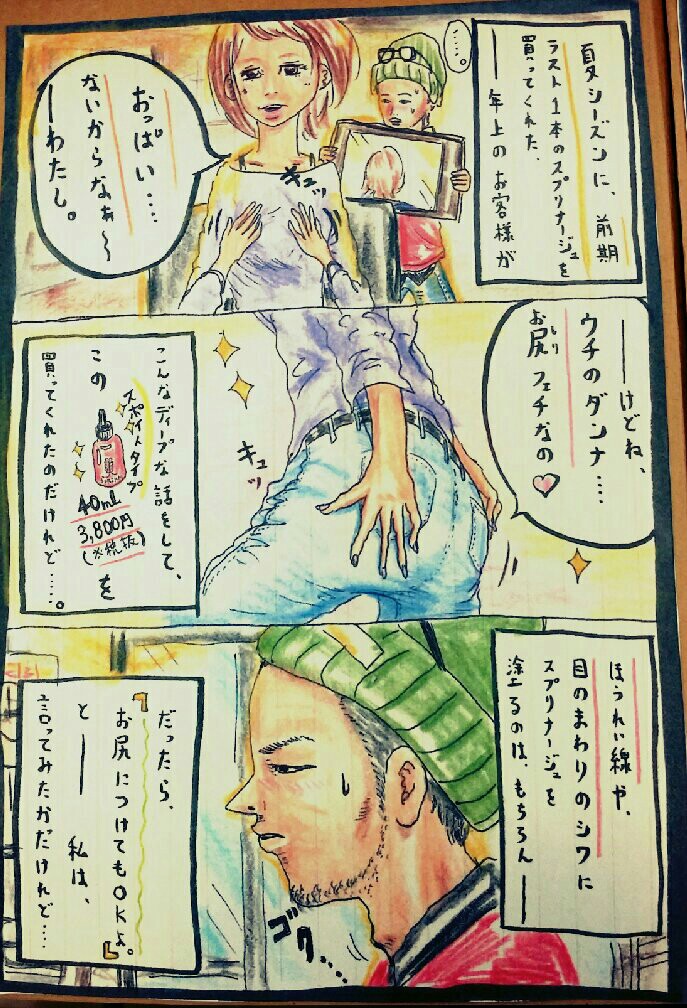 夏シーズンに、前期
ラスト1本のスプリナージュを
買ってくれた、
――年上のお客様が
・・・・。
キュッ
おっぱい・・・
ないからなぁ〜
―わたし。
――けどね、
ウチのダンナ・・・・
お尻フェチなの♡
しり
キュッ
こんなディープな話をして、
スポイトタイプ
この
40mL
3,800円
(※税抜)
を
買ってくれたのだけれど・・・・・。
ほうれい線や、
目のまわりのシワに
スプリナージュを
塗るのは、もちろん――
ゴク・・・・
だったら、
『お尻につけてもOKよ。』
と――
私は、
言ってみたかだけれど・・・・